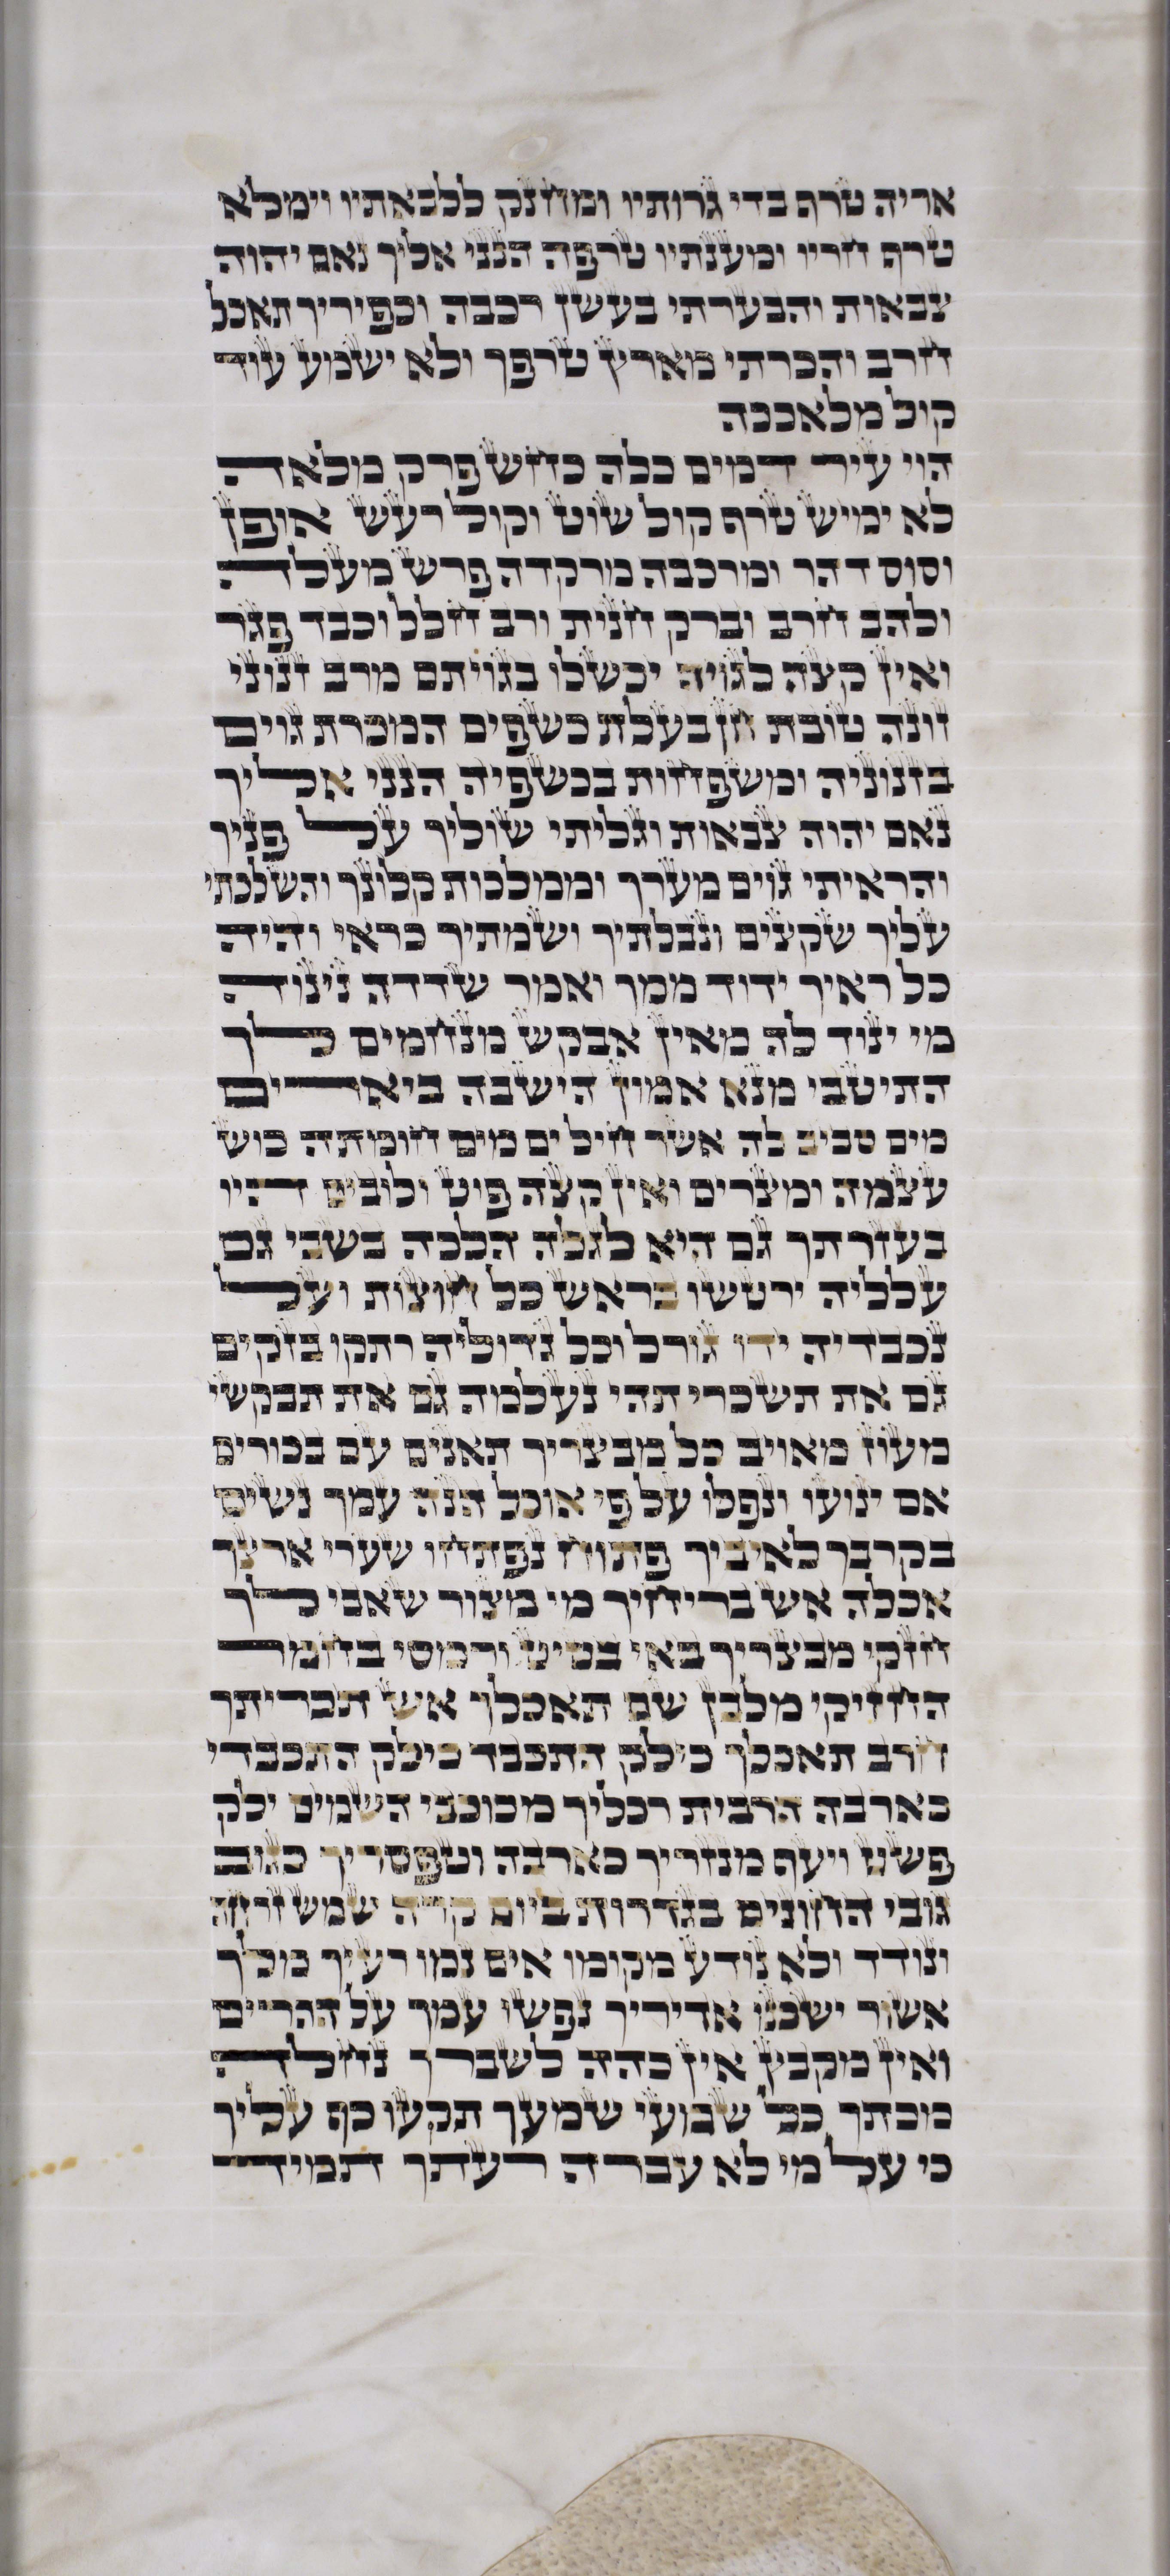 אריה טרף בדי גרותיו ומחנק ללבאתיו וימלא
טרף חריו ומענתיו טרפה הנני אליך נאם יהוה
צבאות והבערתי בעשן רכבה וכפיריך תאכל
חרב והכרתי מארץ טרפך ולא ישמע עוד
קול מלאככה
הוי עיר דמים כלה כחש פרק מלאה
לא ימיש טרף קול שוט וקול רעש אופן
וסוס דהר ומרכבה מרקדה פרש מעלה
ולהב חרב וברק חנית ורב חלל וכבד פגר
ואין קצה לגויה יכשלו בגויתם מרב זנוני
זונה טובת חן בעלת כשפים המכרת גוים
בזנוניה ומשפחות בכשפיה הנני אליך
נאם יהוה צבאות וגליתי שוליך על פניך
והראיתי גוים מערך וממלכות קלונך והשלכתי
עליך שקצים ונבלתיך ושמתיך כראי והיה
כל ראיך ידוד ממך ואמר שדדה נינוה
מי ינוד לה מאין אבקש מנחמים לך
התיטבי מנא אמון הישבה ביארים
מים סביב לה אשר חיל ים מים חומתה כוש
עצמה ומצרים ואין קצה פוט ולובים היו
בעזרתך גם היא לגלה הלכה בשבי גם
עלליה ירטשו בראש כל חוצות ועל
נכבדיה ידו גורל וכל גדוליה רתקו בזקים
גם את תשכרי תהי נעלמה גם את תבקשי
מעוז מאויב כל מבצריך תאנים עם בכורים
אם ינועו ונפלו על פי אוכל הנה עמך נשים
בקרבך לאיביך פתוח נפתחו שערי ארצך
אכלה אש בריחיך מי מצור שאבי לך
חזקי מבצריך באי בטיט ורמסי בחמר
החזיקי מלבן שם תאכלך אש תכריתך
חרב תאכלך כילק התכבד כילק התכבדי
כארבה הרבית רכליך מכוכבי השמים ילק
פשט ויעף מנזריך כארבה וטפסריך כגוב
גובי החונים בגדרות ביום קרה שמש זרחה
ונודד ולא נודע מקומו אים נמו רעיך מלך
אשור ישכנו אדיריך נפשו עמך על ההרים
ואין מקבץ אין כהה לשברך נחלה
מכתך כל שמעי שמעך תקעו כף עליך
כי על מי לא עברה רעתך תמיד